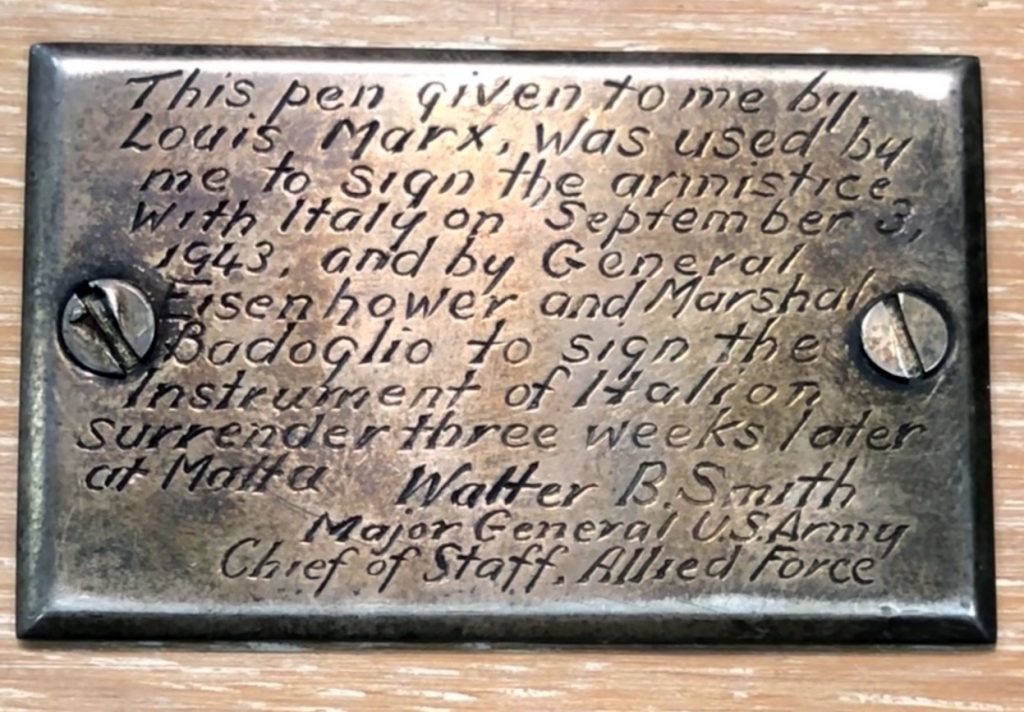 This pen given to me by
Louis Marx, was used by
me to sign the armistice
With Italy on September 3,
1943, and by General
Eisenhower and Marshal
Badoglio to sign the
Instrument of Italian
surrender three weeks later
at Malta Walter B. Smith
Major General U.S. Army
Chief of Staff, Allied Force